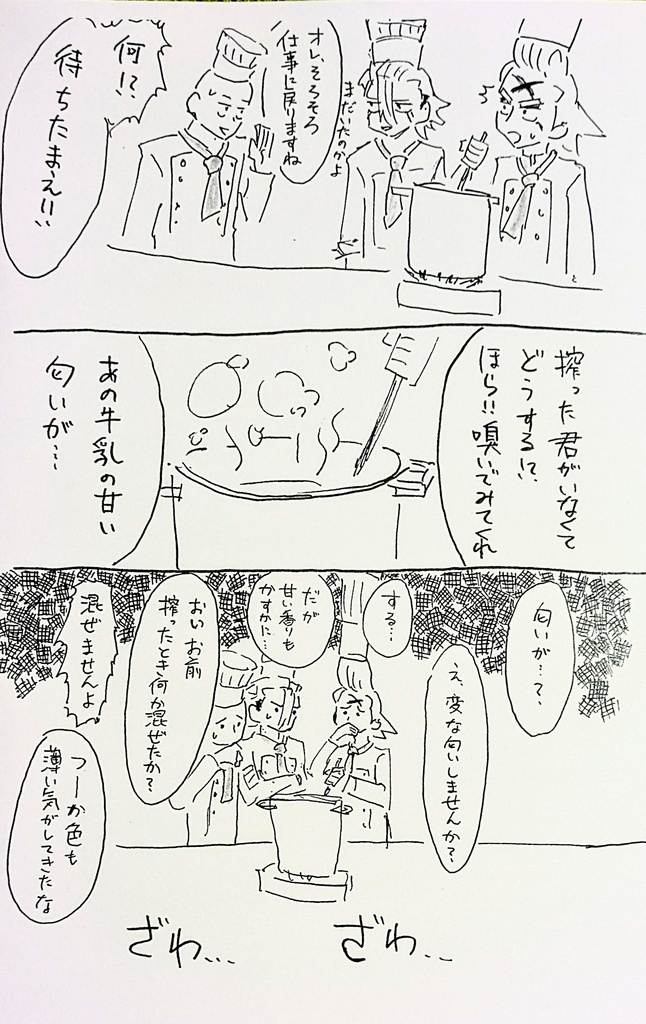 オレ、そろそろ
仕事に戻りますね
まだいたのかよ
何!?
待ちたまえ!!
搾った君がいなくて
どうする!?
ほら!!嗅いでみてくれ
あの牛乳の甘い
匂いが…
匂いが…?
え、変な匂いしませんか?
する…
だが
甘い香りも
かすかに…
おいお前
搾ったとき何か混ぜたか?
混ぜませんよ
つーか色も
薄い気がしてきたな
ざわ…
ざわ…